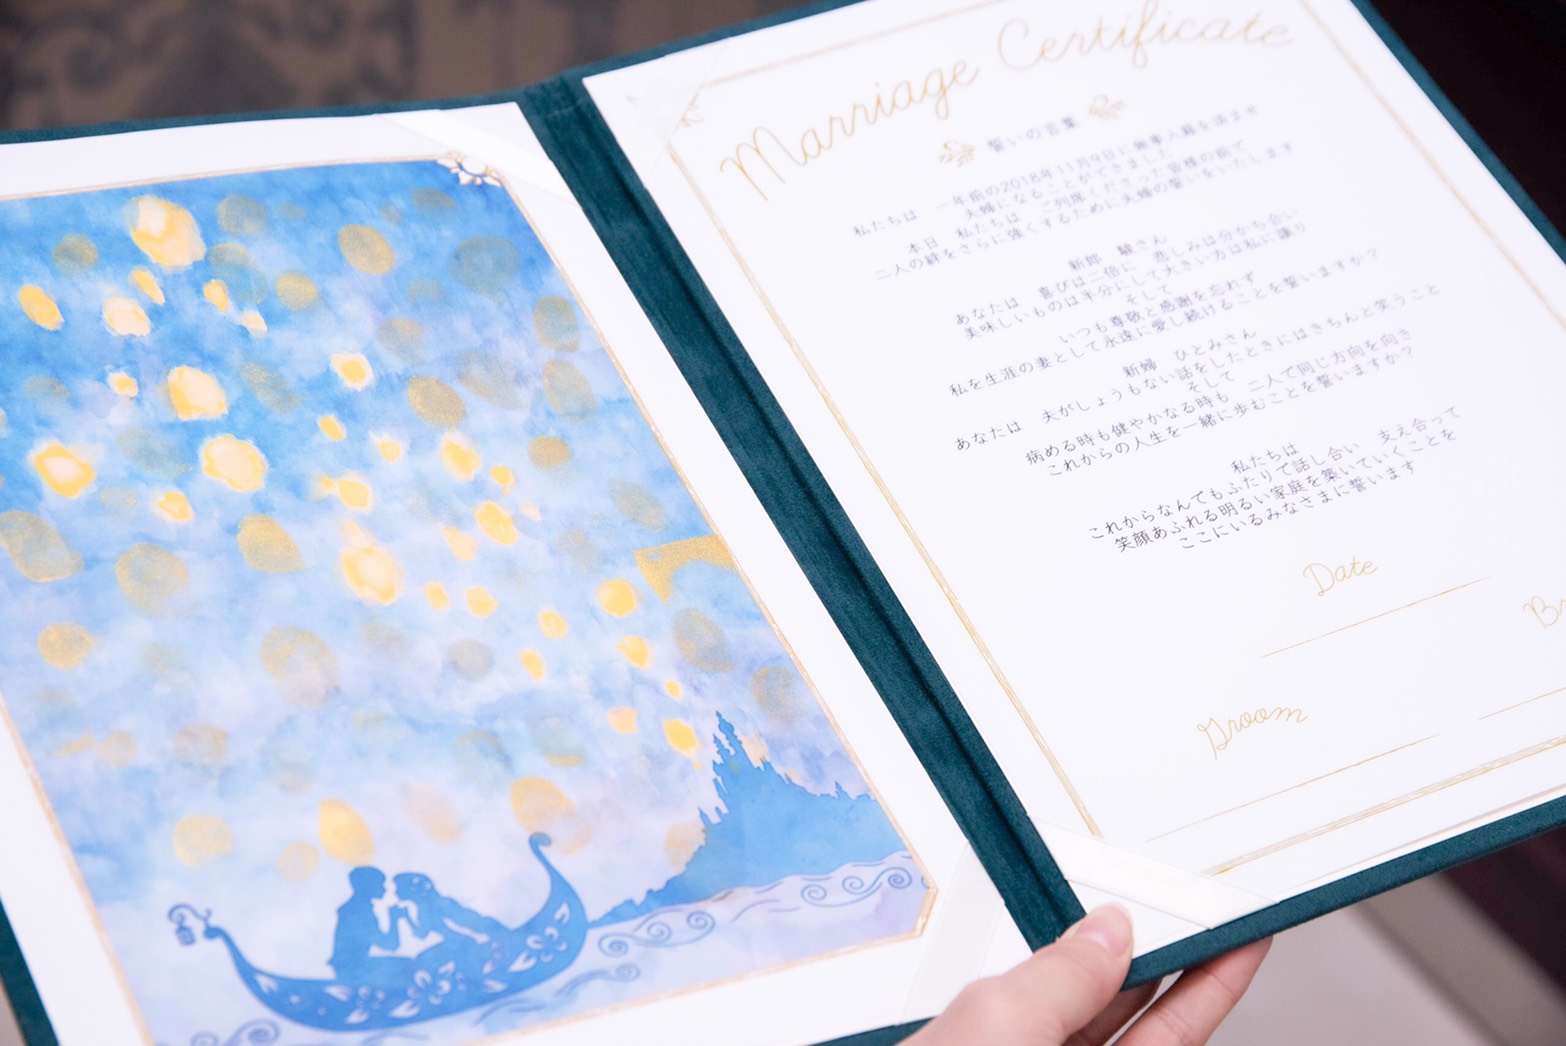 Marriage Certificate
誓いの言葉
私たちは 一年前の2018年11月9日に無事入籍を済ませ
夫婦になることができました
本日 私たちは ご列席くださった皆様の前で
二人の絆をさらに強くするために夫婦の誓いをいたします
新郎 駿さん
あなたは 喜びは二倍に 悲しみは分かち合い
美味しいものは半分にして大きい方は私に譲り
そして
いつも尊敬と感謝を忘れず
私を生涯の妻として永遠に愛し続けることを誓いますか?
新婦 ひとみさん
あなたは 夫がしょうもない話をしたときにはきちんと笑うこと
そして
病める時も健やかなる時も 二人で同じ方向を向き
これからの人生を一緒に歩むことを誓いますか?
私たちは
これからなんでもふたりで話し合い 支え合って
笑顔あふれる明るい家庭を築いていくことを
ここにいるみなさまに誓います
Date
Groom